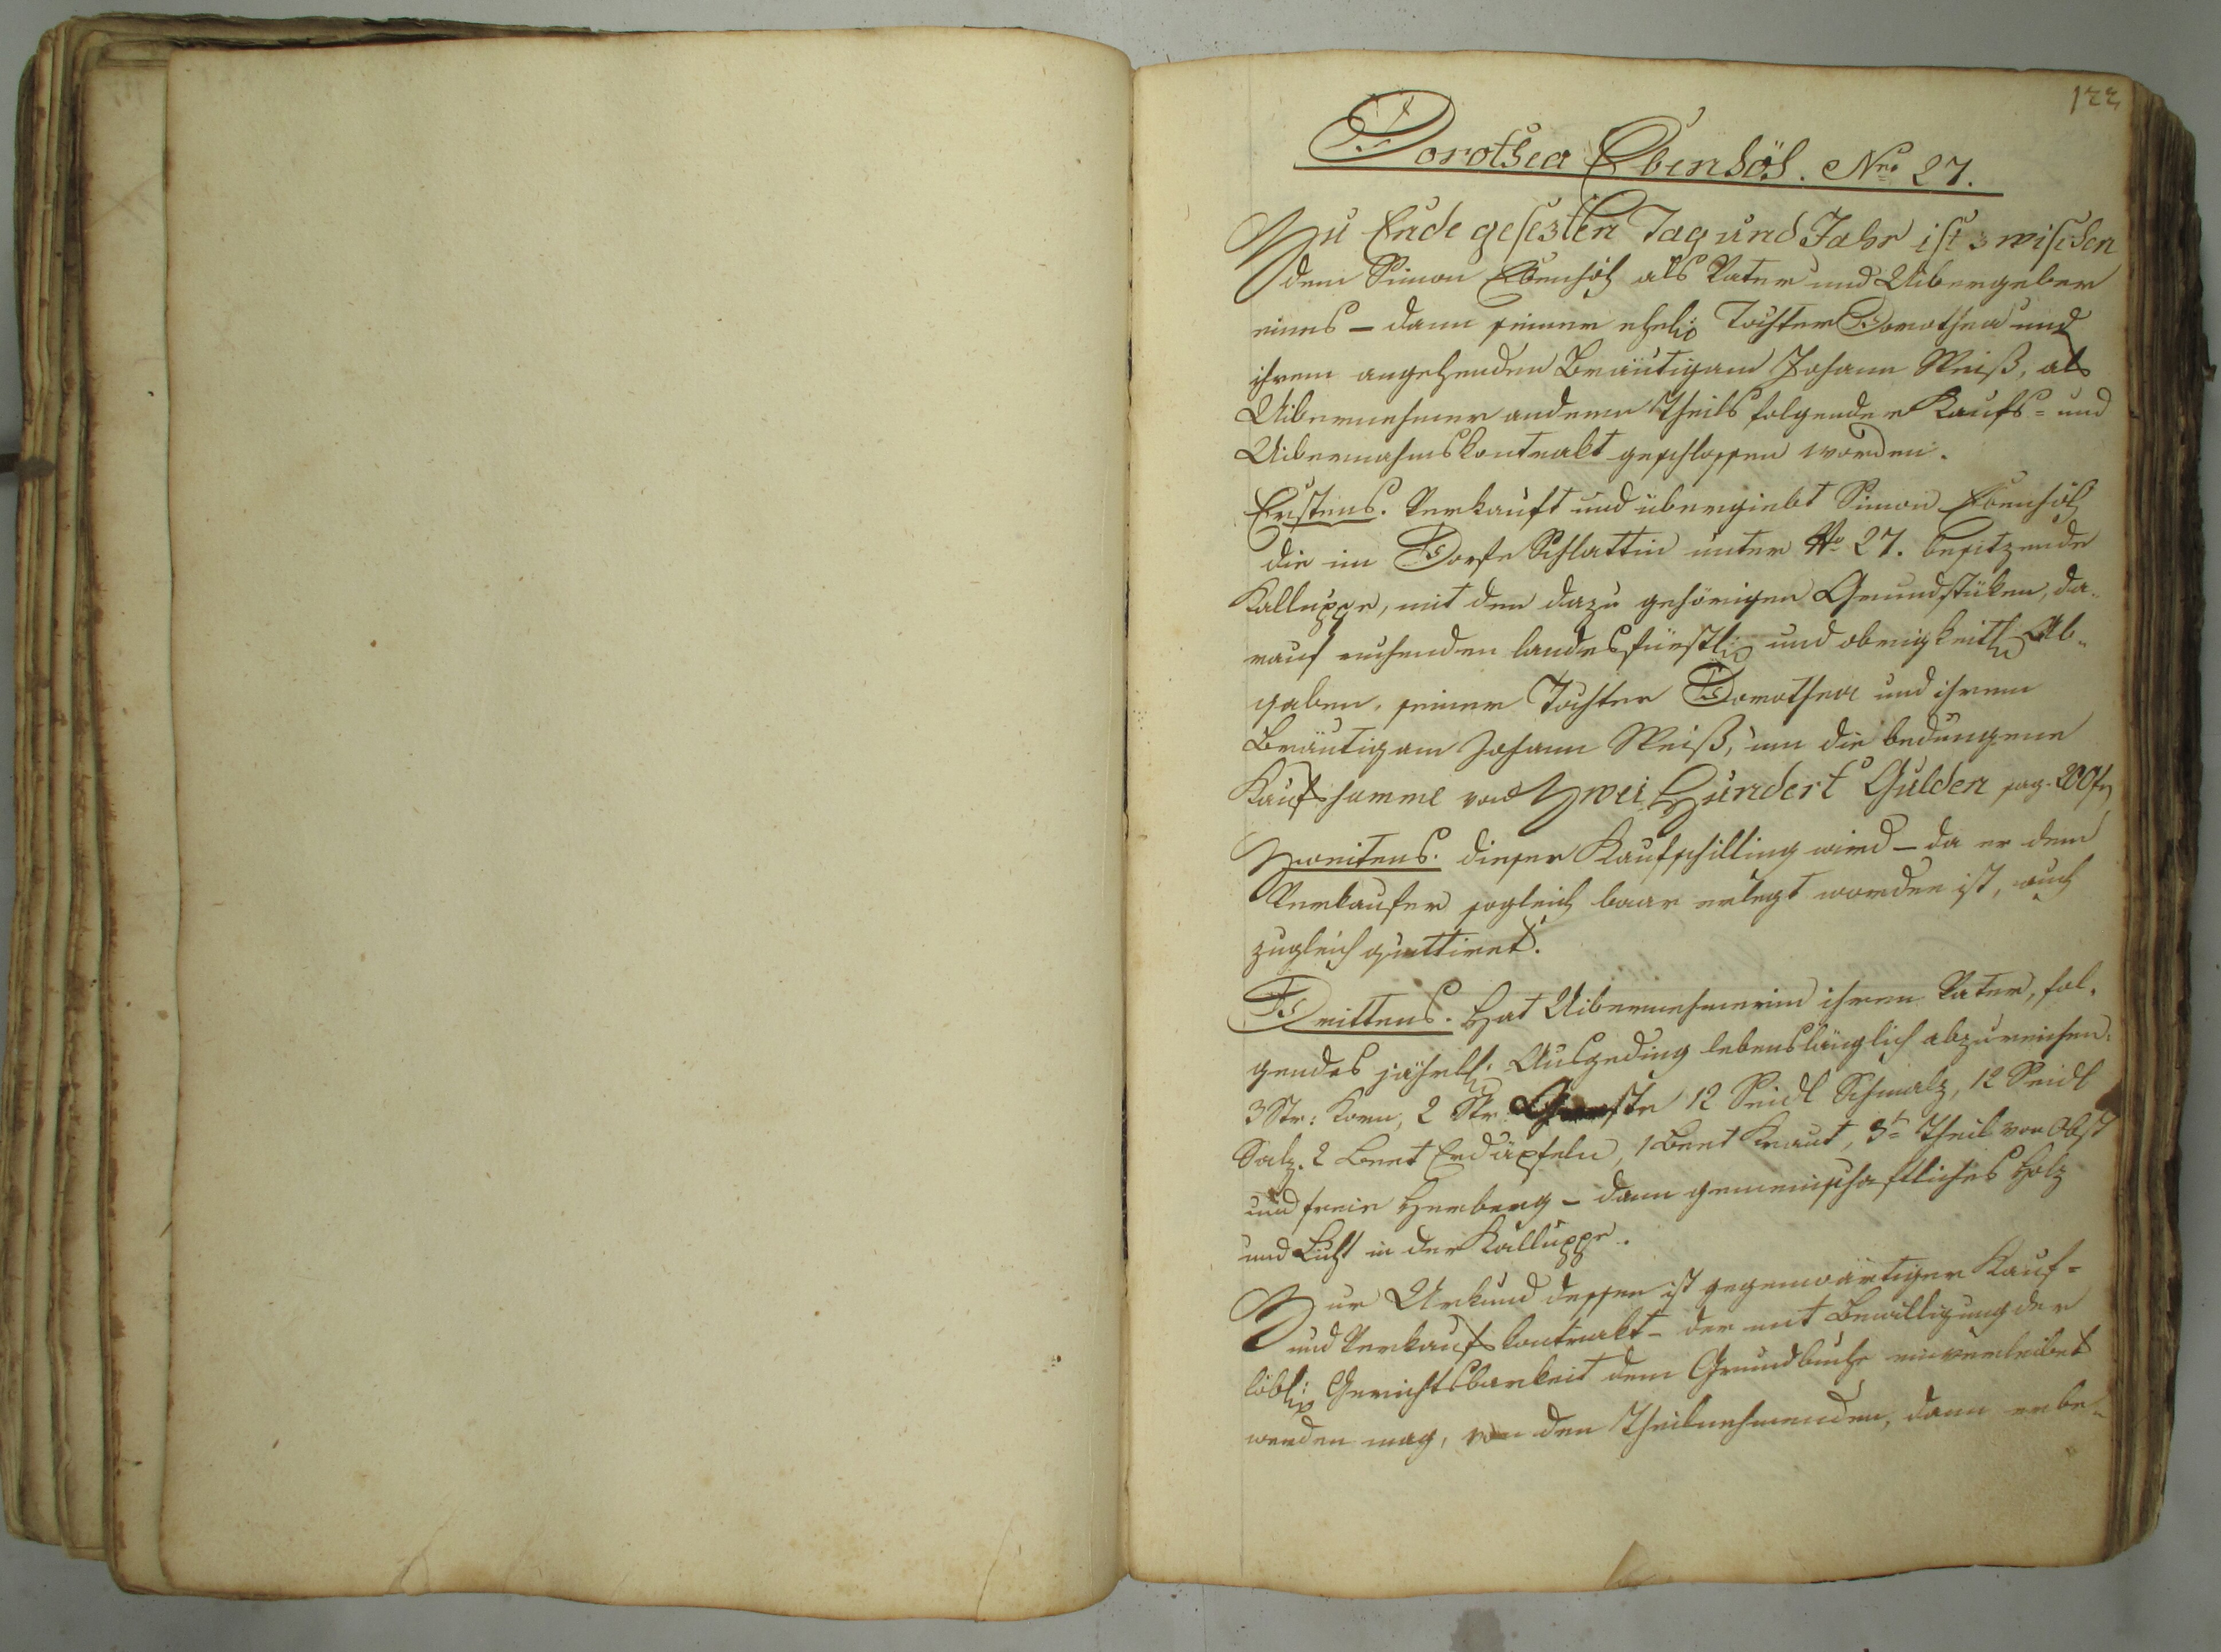 122
Dorothea Ebenhöh. Nro 27.
Zu Ende gesezten Tag und Jahr ist zwischen
dem Simon Ebenhöh als Vater und Uibergeber
eines – dann seiner ehel: Tochter Dorothea und
ihrem angehenden Bräutigam Johann Weiß, als
Uibernehmer anderen Theils folgender Kaufs= und
Uibernahmskontrakt geschlossen worden.
Erstens. Verkauft und übergiebt Simon Ebenhöh
die im Dorfe Schlattin unter No 27. besitzende
Kalluppe, mit den dazu gehörigen Grundstüken, da-
rauf ruhenden landesfürstl: und obrigkeitl: Ab-
gaben, seiner Tochter Dorothea und ihrem
Bräutigam Johann Weiß, um die bedungene
Kaufssumme von Zwei Hundert Gulden sag. 200 f
Zweitens. dieser Kaufschilling wird – da er dem
Verkaufer sogleich baar erlegt worden ist, auch
zugleich quittiret.
Drittens. Hat Uibernehmerin ihren Vater, fol-
gendes jährl: Ausgeding lebenslänglich abzureichen:
3 Str: Korn, 2 Str. Gerste 12 Seidl Schmalz, 12 Seidl
Salz. 2 Beet Erdäpfeln, 1 Beet Kraut, 3t Theil von Obst
und freie Herberg – dann gemeinschaftliches Holz
und Licht in der Kalluppe.
Zur Urkund dessen ist gegenwärtiger Kauf=
und Verkaufskontrakt – der mit Bewilligung der
löbl: Gerichtsbarkeit dem Grundbuche einverleibet
werden mag, von den Theilnehmenden, dann erbe-